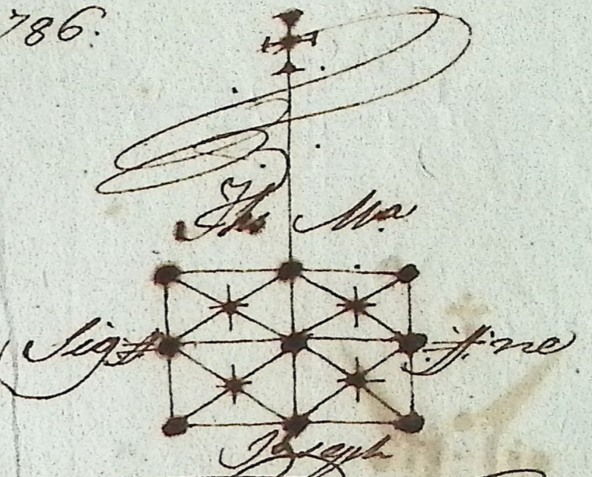 786.
Jhs Ma
Sig fine
Joseph